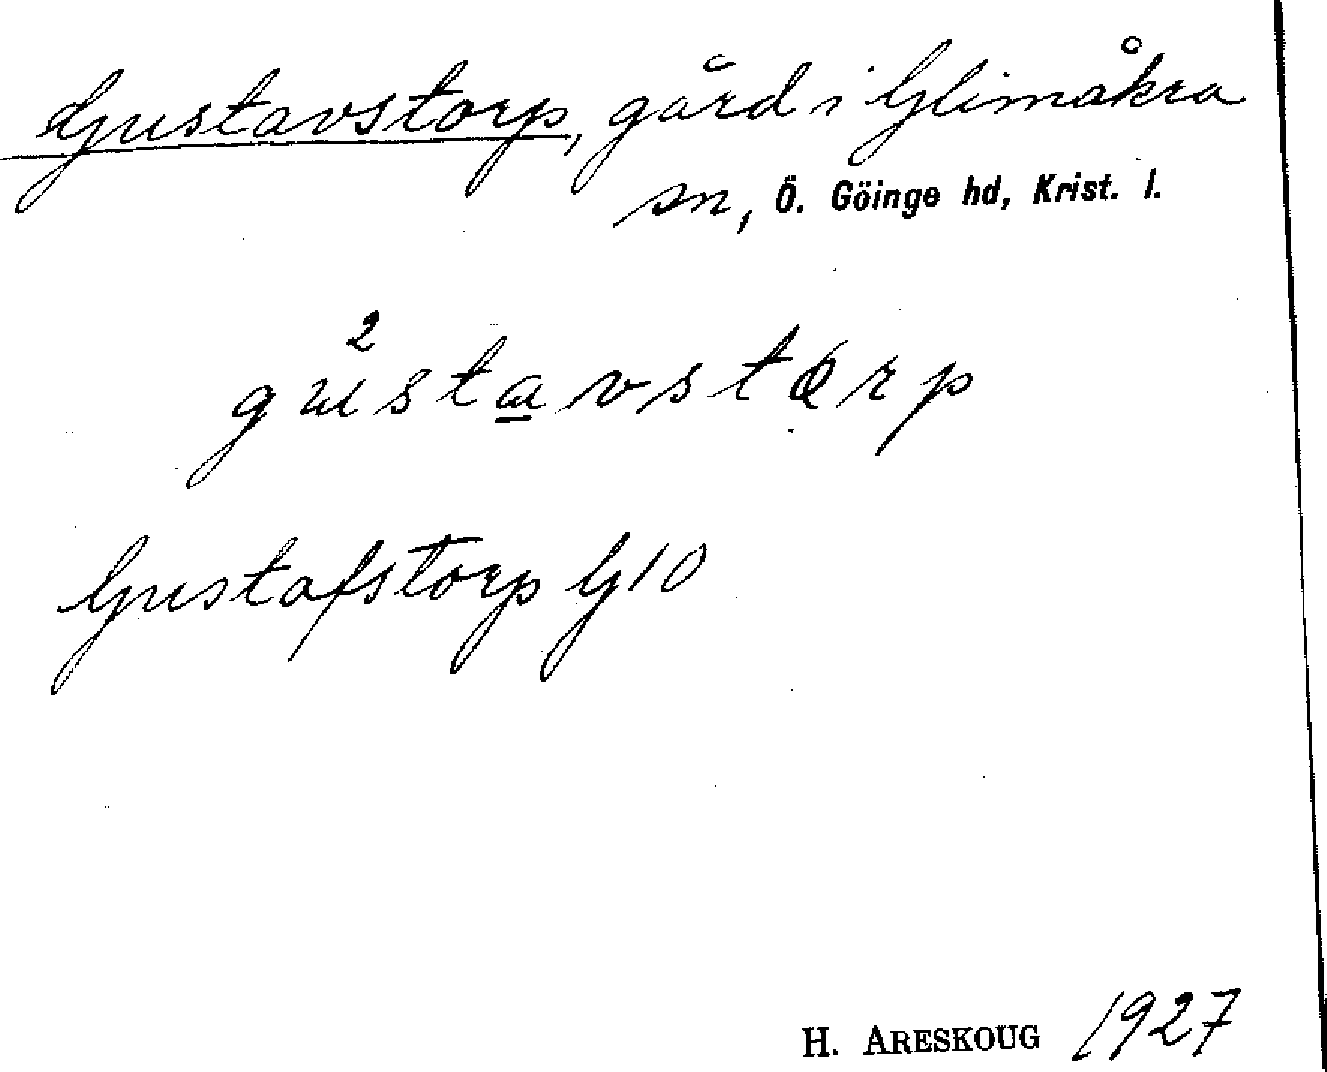 Gustavstorp, gård i Glimåkra
sn, Ö. Göinge hd, Krist. l.
gu²stavstorp
Gustafstorp G10
H. ARESKOUG 1927